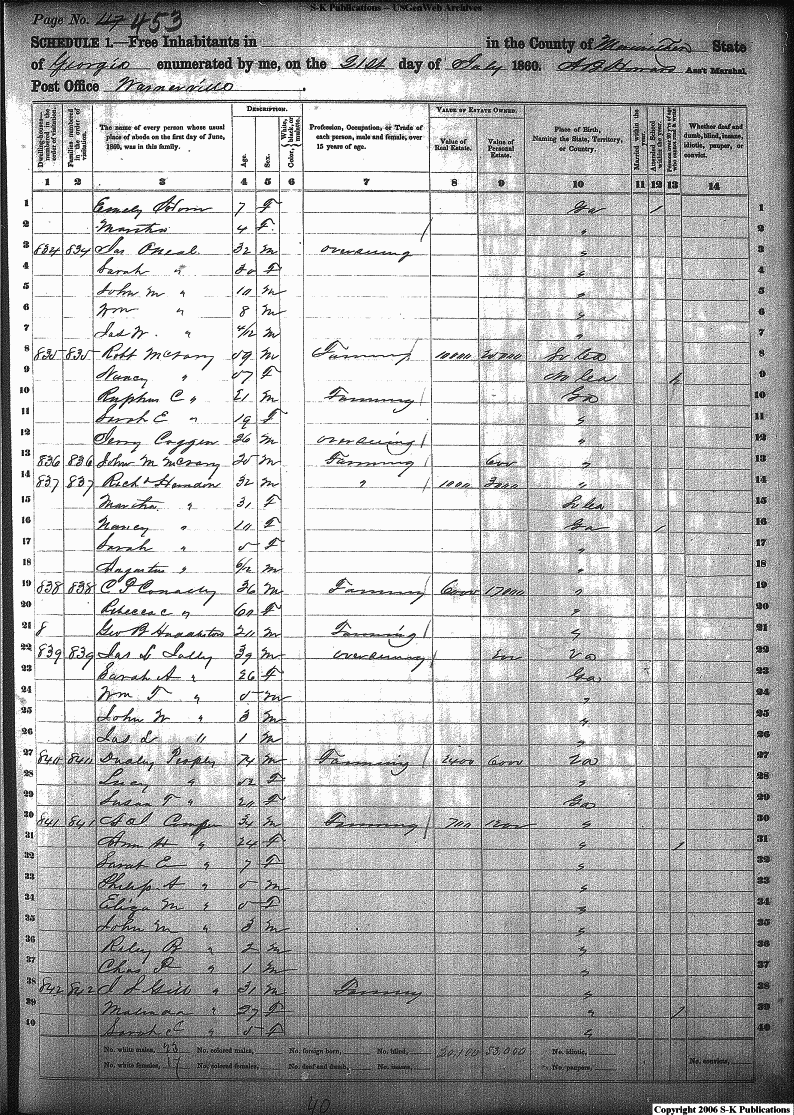 S-K Publications – USGenWeb Archives
Page No. 47 453
SCHEDULE 1.—Free Inhabitants in in the County of State
of Georgia enumerated by me, on the 21st day of July 1860. Ass't Marshal.
Post Office Warnerville
DESCRIPTION. VALUE OF ESTATE OWNED.
Dwelling-houses—numbered in the order of visitation.
Families numbered in the order of visitation.
The name of every person whose usual place of abode on the first day of June, 1860, was in this family.
Age.
Sex.
Color, White, black, or mulatto.
Profession, Occupation, or Trade of each person, male and female, over 15 years of age.
Value of Real Estate.
Value of Personal Estate.
Place of Birth, Naming the State, Territory, or Country.
Married within the year.
Attended School within the year.
Persons over 20 y'rs of age who cannot read & write.
Whether deaf and dumb, blind, insane, idiotic, pauper, or convict.
1 2 3 4 5 6 7 8 9 10 11 12 13 14
1 Emely 7 F Ga / 1
2 Martha 4 F " 2
3 834 834 Jas Oneal 32 M overseeing " 3
4 Sarah " 30 F " 4
5 John M " 10 M " 5
6 Wm " 8 M " 6
7 Jas W. " 4/12 M " 7
8 835 835 Robt McCrary 59 M Farming 10000 So Ca 8
9 Nancy " 57 F 9
10 Ruphus C " 21 M Farming Ga 10
11 Sarah E " 19 F " 11
12 Coggin 26 M overseeing " 12
13 836 836 John M McCrary 25 M Farming 600 " 13
14 837 837 Richd 32 M " 1000 3000 " 14
15 Martha " 31 F So Ca 15
16 Nancy " 10 F Ga / 16
17 Sarah " 5 F " 17
18 Augustus " 6/12 M " 18
19 838 838 C P Connally 36 M Farming 6000 17000 " 19
20 Rebecca C " 60 F " 20
21 8 Geo B 20 M Farming " 21
22 839 839 Jas S Lally 39 M overseeing Va 22
23 Sarah A " 26 F Ga 23
24 Wm T " 5 M " 24
25 John W " 3 M " 25
26 Jas L " 1 M " 26
27 840 840 Dudley Peoples 74 M Farming 2400 6000 Va 27
28 Lucy " 52 F " 28
29 Susan T " 20 F Ga 29
30 841 841 34 M Farming 700 1200 " 30
31 Ann H " 24 F " / 31
32 Sarah E " 7 F " 32
33 Philip A " 5 M " 33
34 Eliza M " 5 F " 34
35 John M " 3 M " 35
36 Riley B " 2 M " 36
37 Chas P " 1 M " 37
38 842 842 J S Gill " 31 M Farming " 38
39 Malinda " 27 F " / 39
40 Sarah C " 5 F " 40
No. white males, 23 No. colored males, No. foreign born, No. blind, 20,100 53,000 No. idiotic,
No. white females, 17 No. colored females, No. deaf and dumb, No. insane, No. paupers, No. convicts,
40
Copyright 2006 S-K Publications